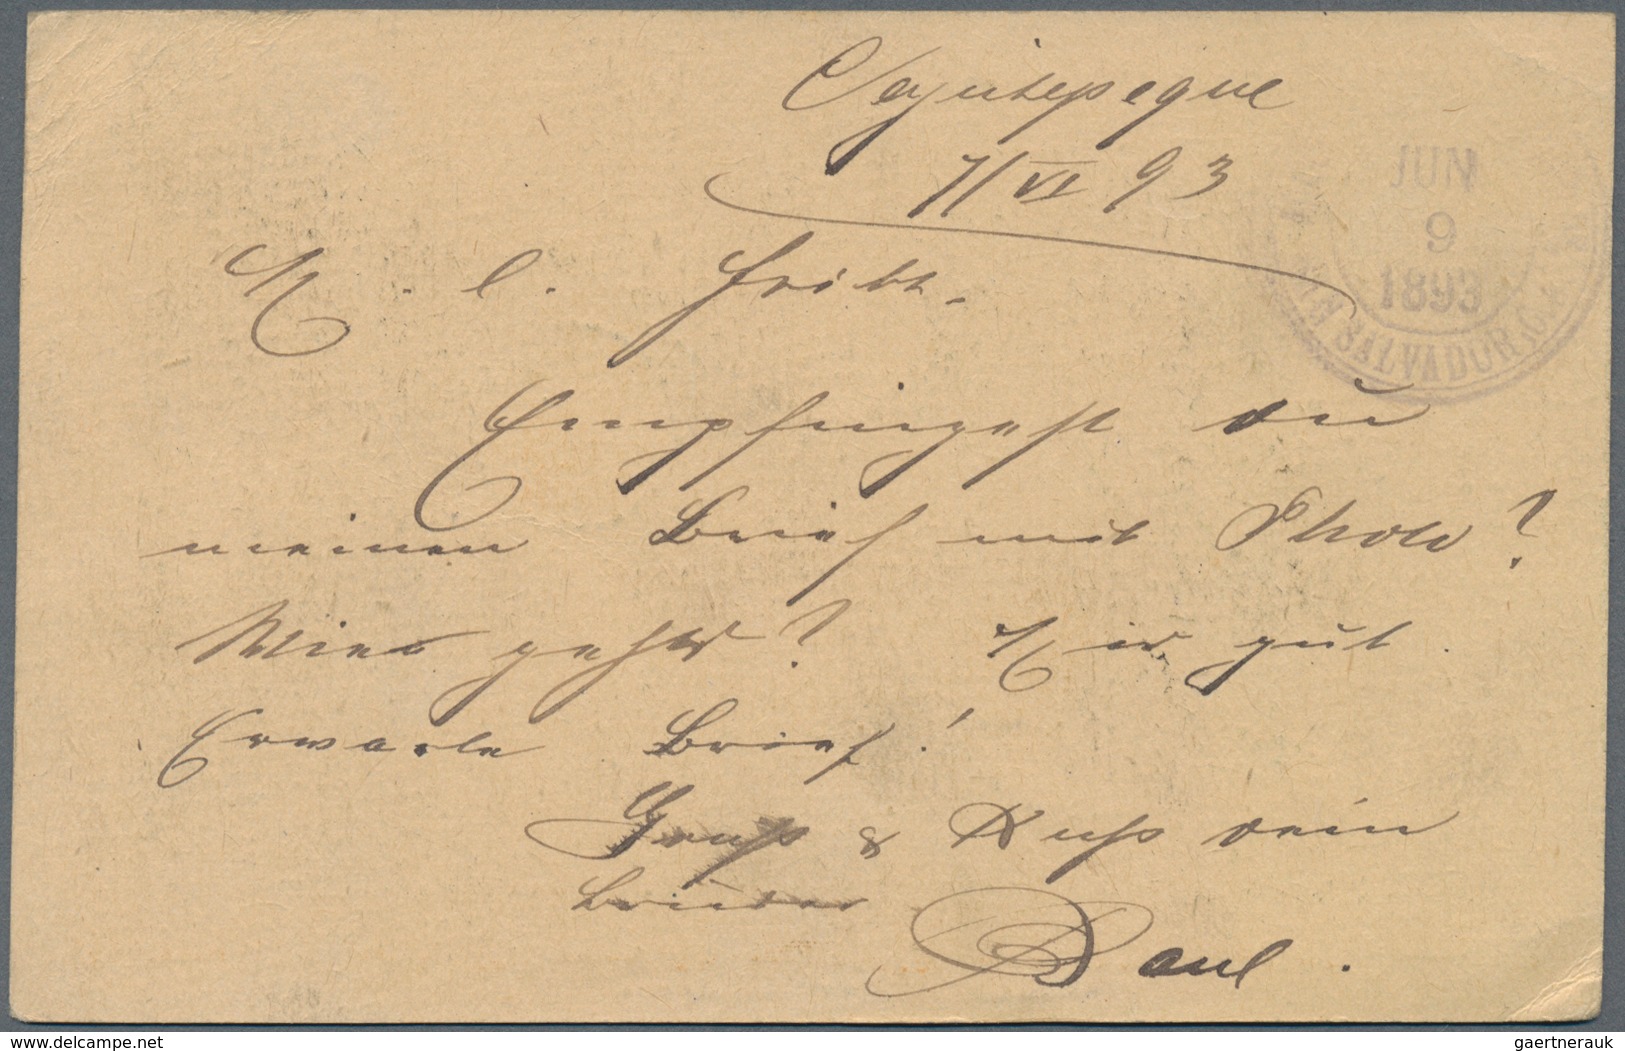 Cojutepeque
7/VI 93
JUN
9
1893
SAN SALVADOR
M. l. Fritz.
Empfingest du
meinen Brief mit Photo?
Wie gehts? Mir gut.
Erwarte Brief!
Gruß & Kuß dein
Bruder
Paul.
delcampe.net
gaertnerauk